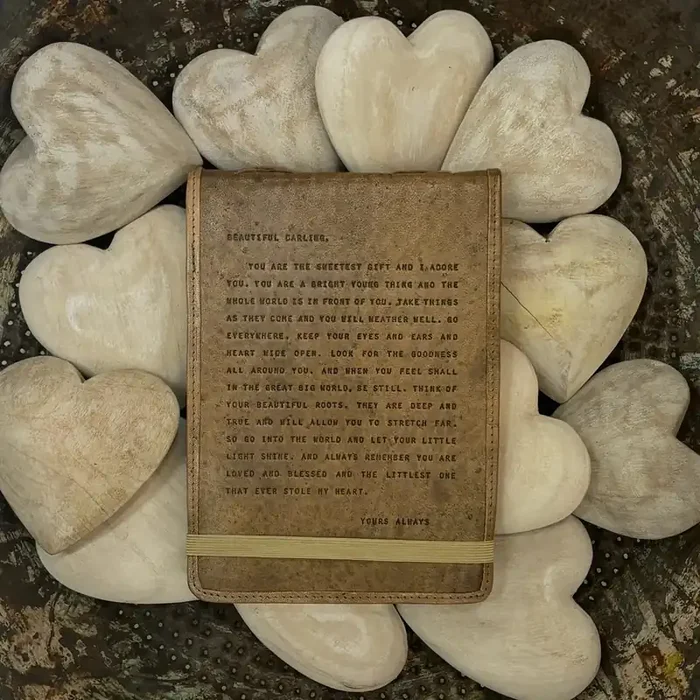 BEAUTIFUL DARLING,
YOU ARE THE SWEETEST GIFT AND I ADORE
YOU. YOU ARE A BRIGHT YOUNG THING AND THE
WHOLE WORLD IS IN FRONT OF YOU. TAKE THINGS
AS THEY COME AND YOU WILL WEATHER WELL. GO
EVERYWHERE. KEEP YOUR EYES AND EARS AND
HEART WIDE OPEN. LOOK FOR THE GOODNESS
ALL AROUND YOU. AND WHEN YOU FEEL SMALL
IN THE GREAT BIG WORLD, BE STILL. THINK OF
YOUR BEAUTIFUL ROOTS. THEY ARE DEEP AND
TRUE AND WILL ALLOW YOU TO STRETCH FAR.
SO GO INTO THE WORLD AND LET YOUR LITTLE
LIGHT SHINE. AND ALWAYS REMEMBER YOU ARE
LOVED AND BLESSED AND THE LITTLEST ONE
THAT EVER STOLE MY HEART.
YOURS ALWAYS